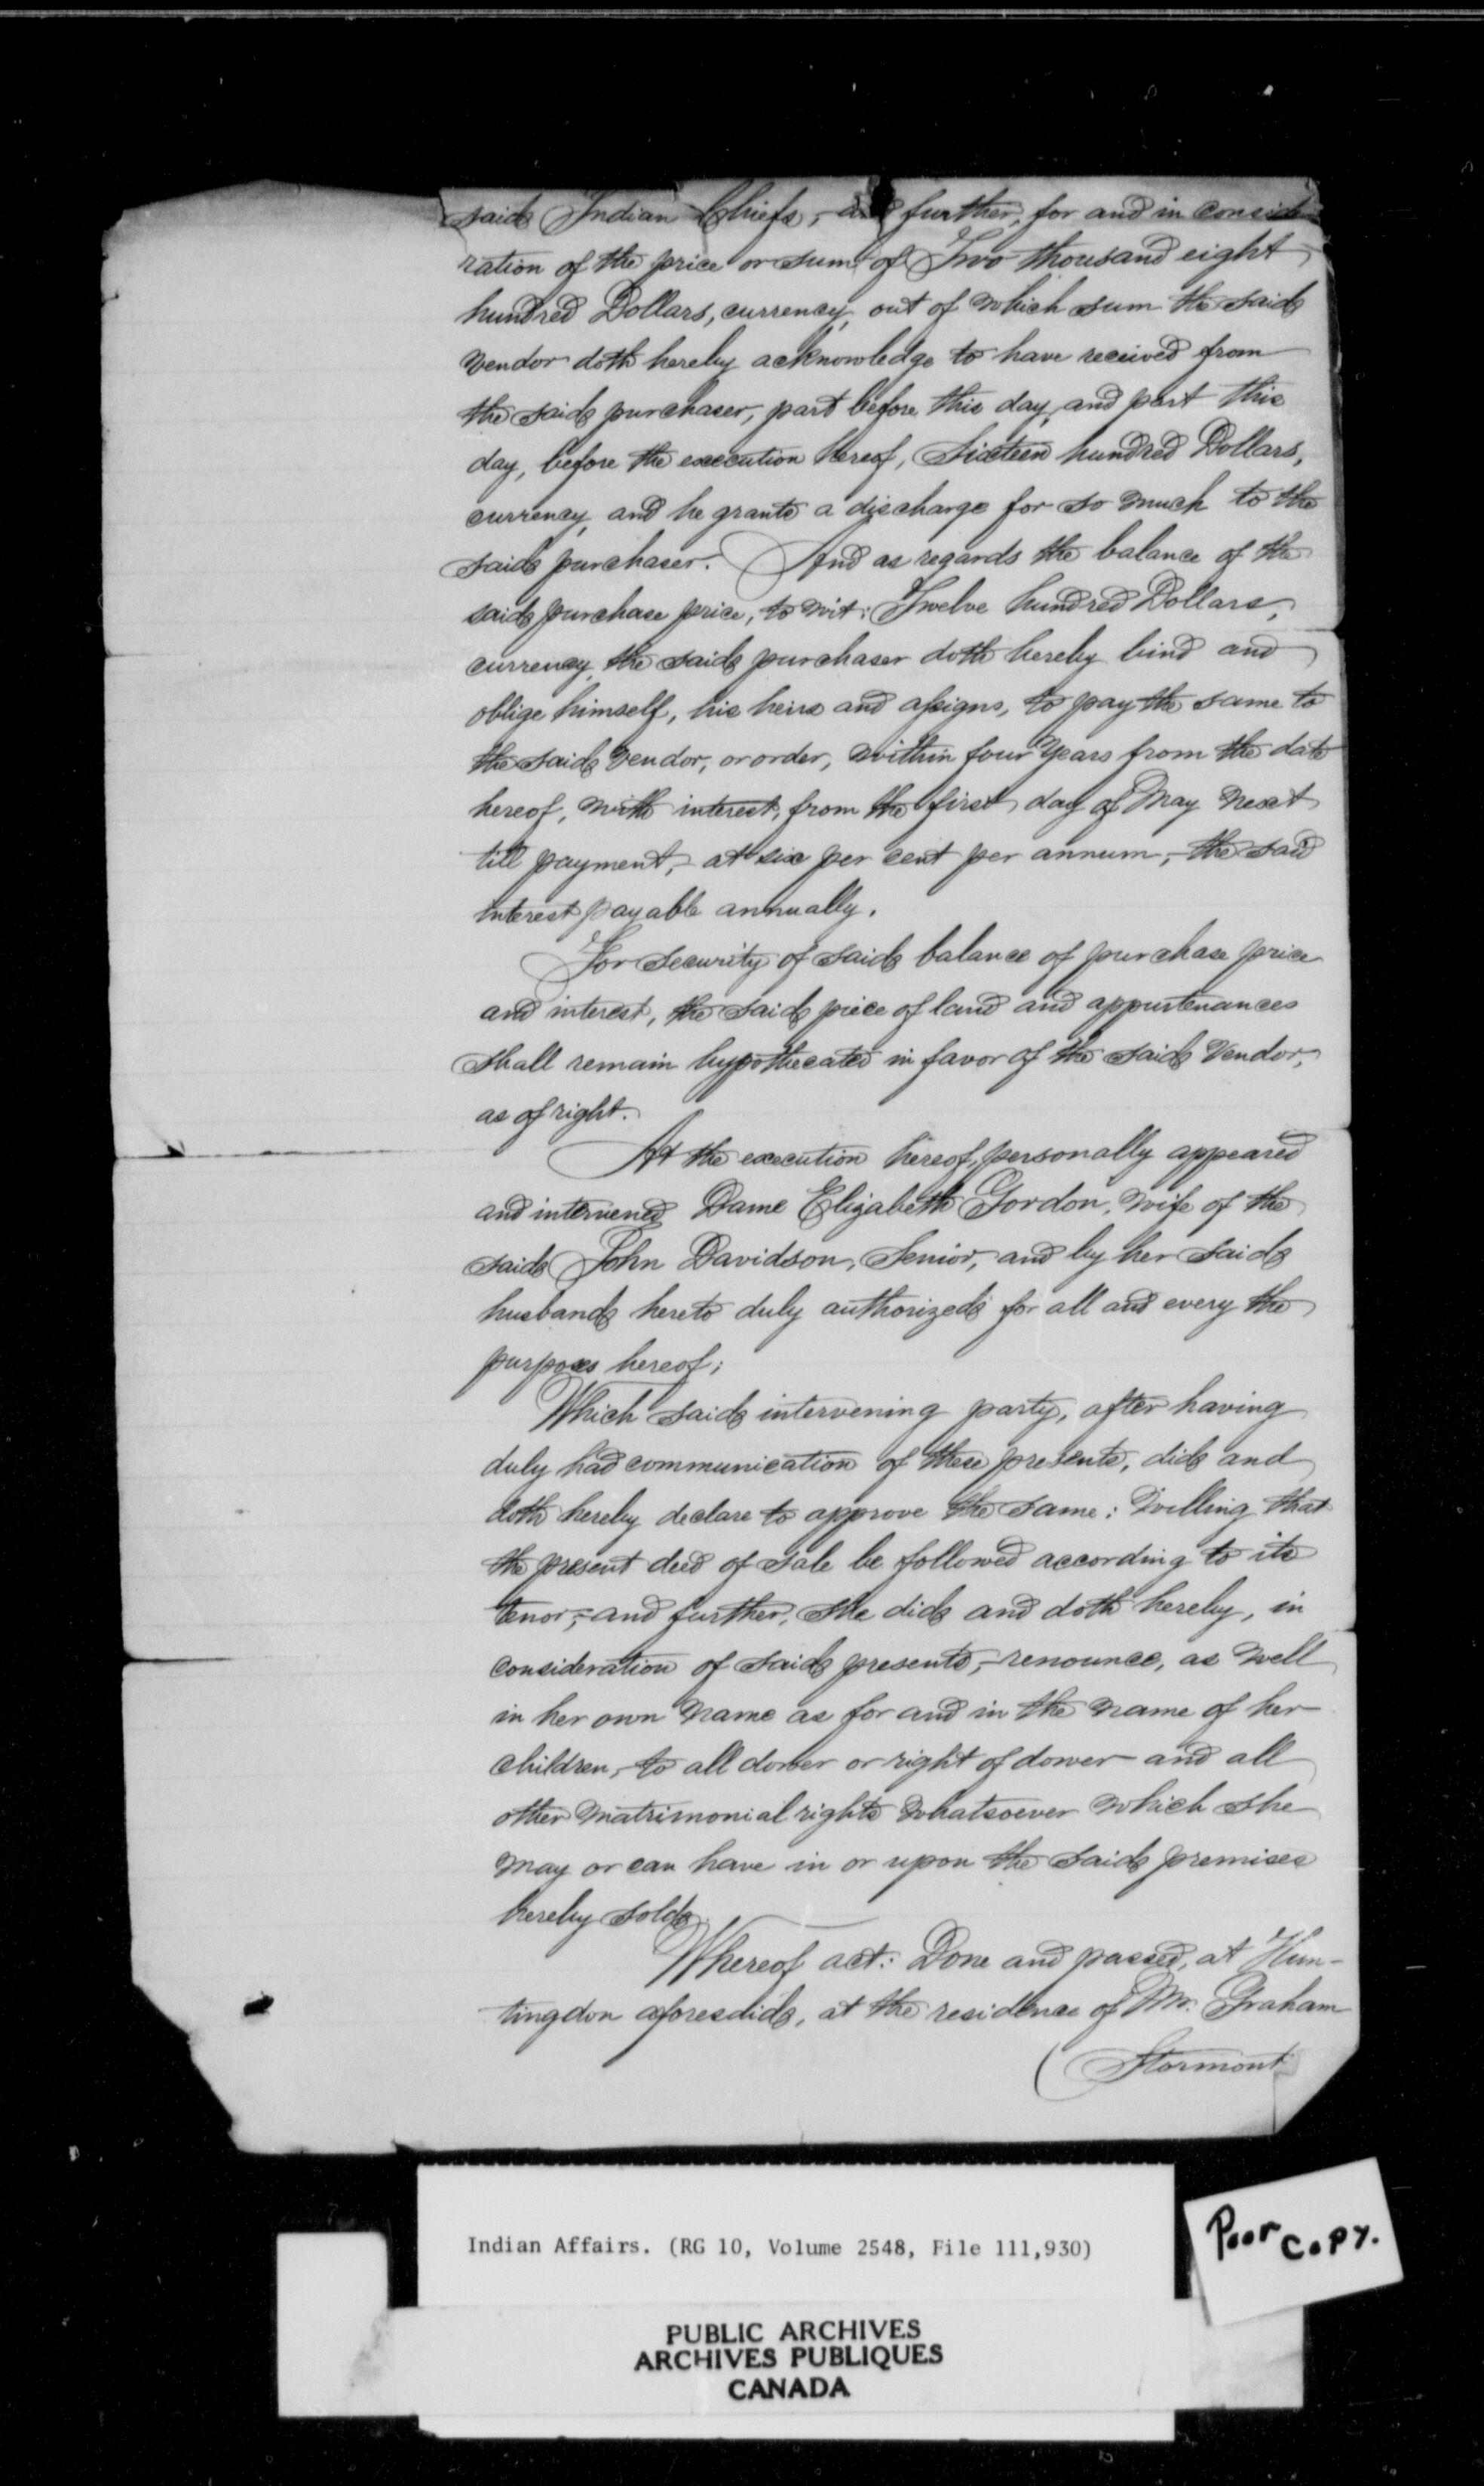 said Indian Chiefs, – and further, for and in conside
ration of the price or sum of Two thousand eight
hundred Dollars, currency, out of which sum the said
Vendor doth hereby acknowledge to have received from
the said purchaser, part before this day, and part this
day, before the execution hereof, Sixteen hundred Dollars,
currency, and he grants a discharge for so much to the
said purchaser. And as regards the balance of the
said purchase price, to wit: Twelve hundred Dollars,
currency, the said purchaser doth hereby bind and
oblige himself, his heirs and assigns, to pay the same to
the said Vendor, or order, within four years from the date
hereof, with interest, from the first day of May next
till payment, – at six per cent per annum, – the said
interest payable annually.
For security of said balance of purchase price
and interest, the said piece of land and appurtenances
shall remain hypothecated in favor of the said Vendor,
as of right.
At the execution hereof, personally appeared
and intervened Dame Elizabeth Gordon, wife of the
said John Davidson, Senior, and by her said
husband hereto duly authorized for all and every the
purposes hereof;
Which said intervening party, after having
duly had communication of these presents, did and
doth hereby declare to approve the same: Willing that
the present deed of sale be followed according to its
tenor; – and further, she did and doth hereby, in
consideration of said presents, – renounce, as well
in her own name as for and in the name of her
children, – to all dower or right of dower and all
other matrimonial rights whatsoever which she
may or can have in or upon the said premises
hereby sold.
Whereof act: Done and passed, at Hun-
tingdon aforesaid, at the residence of Mr. Graham
(Stormont
Indian Affairs. (RG 10, Volume 2548, File 111,930)
Poor Copy.
PUBLIC ARCHIVES
ARCHIVES PUBLIQUES
CANADA